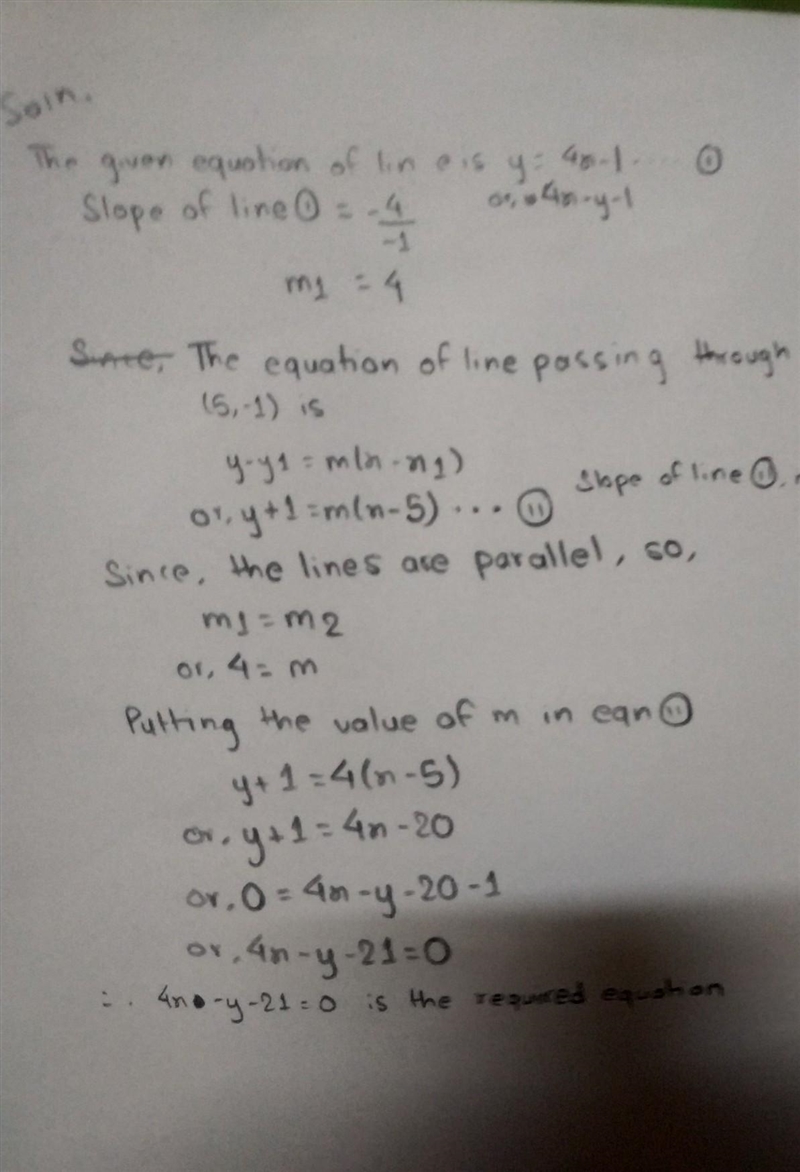 Soln.
The given equation of line is y = 4x-1 .... ①
Slope of line ① = -4/-1 or, 4x-y-1
m1 = 4
The equation of line passing through
(5,-1) is
y-y1 = m(x-x1)
or, y+1 = m(x-5) ... ⑪ Slope of line ⑪,
Since, the lines are parallel, so,
m1 = m2
or, 4 = m
Putting the value of m in eqn ⑪
y+1 = 4(x-5)
or, y+1 = 4x-20
or, 0 = 4x-y-20-1
or, 4x-y-21=0
∴ 4x-y-21=0 is the required equation